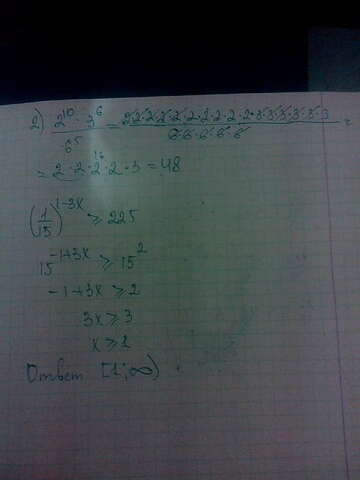 2) (2¹⁰ · 3⁶)/6⁵ = (2·2·2·2·2·2·2·2·2·2·3·3·3·3·3·3)/(6·6·6·6·6) =
16
= 2·2·2·2·3 = 48
(1/15)^(1-3x) ≥ 225
15^(-1+3x) ≥ 15²
-1+3x ≥ 2
3x ≥ 3
x ≥ 1
Ответ [1; ∞)